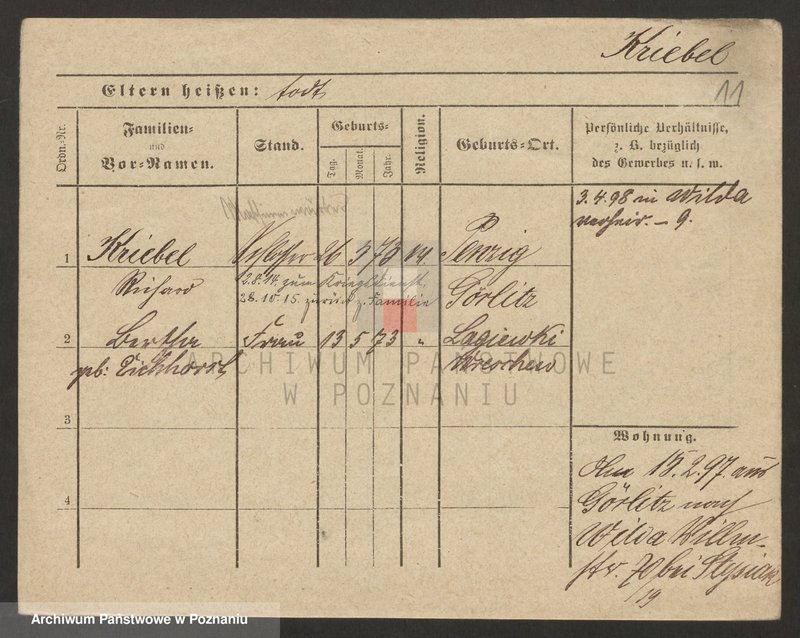 Kriebel
Eltern heißen: todt
11
Ordn.-Nr.
Familien-
und
Vor-Namen.
Stand.
Geburts-
Tag.
Monat.
Jahr.
Religion.
Geburts-Ort.
Persönliche Verhältnisse,
z. B. bezüglich
des Gewerbes u. s. w.
3.4.98 in Wilda
verheir. – 9.
1
Kriebel
Schlosser 26 5 73
Penzig
Richard
3.8.14. zum Kriegsdienst,
28.10.15. zurück z. Familie
Görlitz
2
Bertha
Frau 13 5 73 "
Lagiewki
geb: Eichhorst
Wreschen
ARCHIWUM PAŃSTWOWE
W POZNANIU
3
4
Wohnung.
15.2.97. aus
Görlitz nach
Wilda
Str. 70 bei
19
Archiwum Panstwowe w Poznaniu